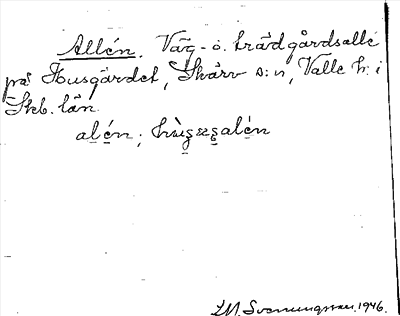 Allén. Väg- o. trädgårdsallé
på Husgärdet, Skärv s:n, Valle h: i
Skb. län.
alén; hùsgalén
LM. Svenungsson. 1946.